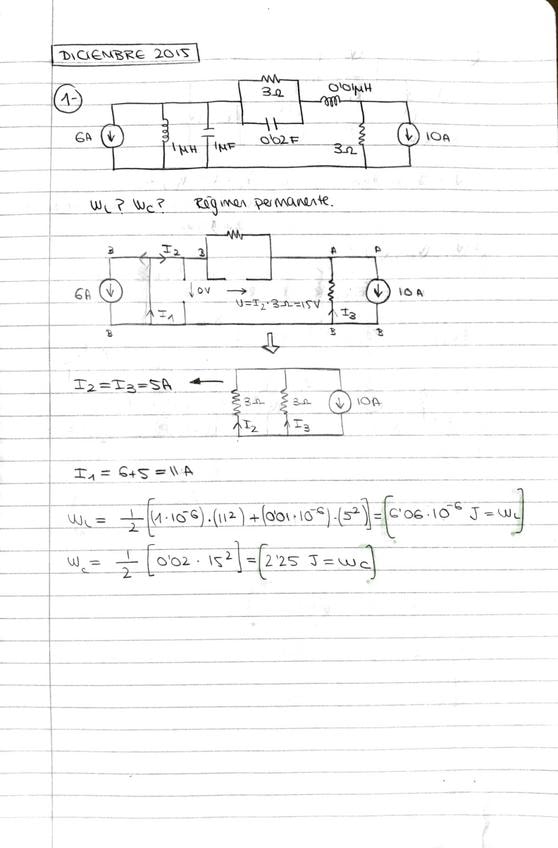 DICIEMBRE 2015
1-
3Ω 0'01μH
6A 1μH 1μF 0'02F 3Ω 10A
WL? WC? Régimen permanente.
B I2 B A A
6A I1 ↓0V → U=I2·3Ω=15V I3 10A
B B B
I2=I3=5A ← 3Ω 3Ω 10A
I2 I3
I1 = 6+5 = 11 A
WL = 1/2 [(1·10^-6)·(11^2)+(0'01·10^-6)·(5^2)] = [6'06·10^-6 J = WL]
WC = 1/2 [0'02 · 15^2] = [2'25 J = WC]